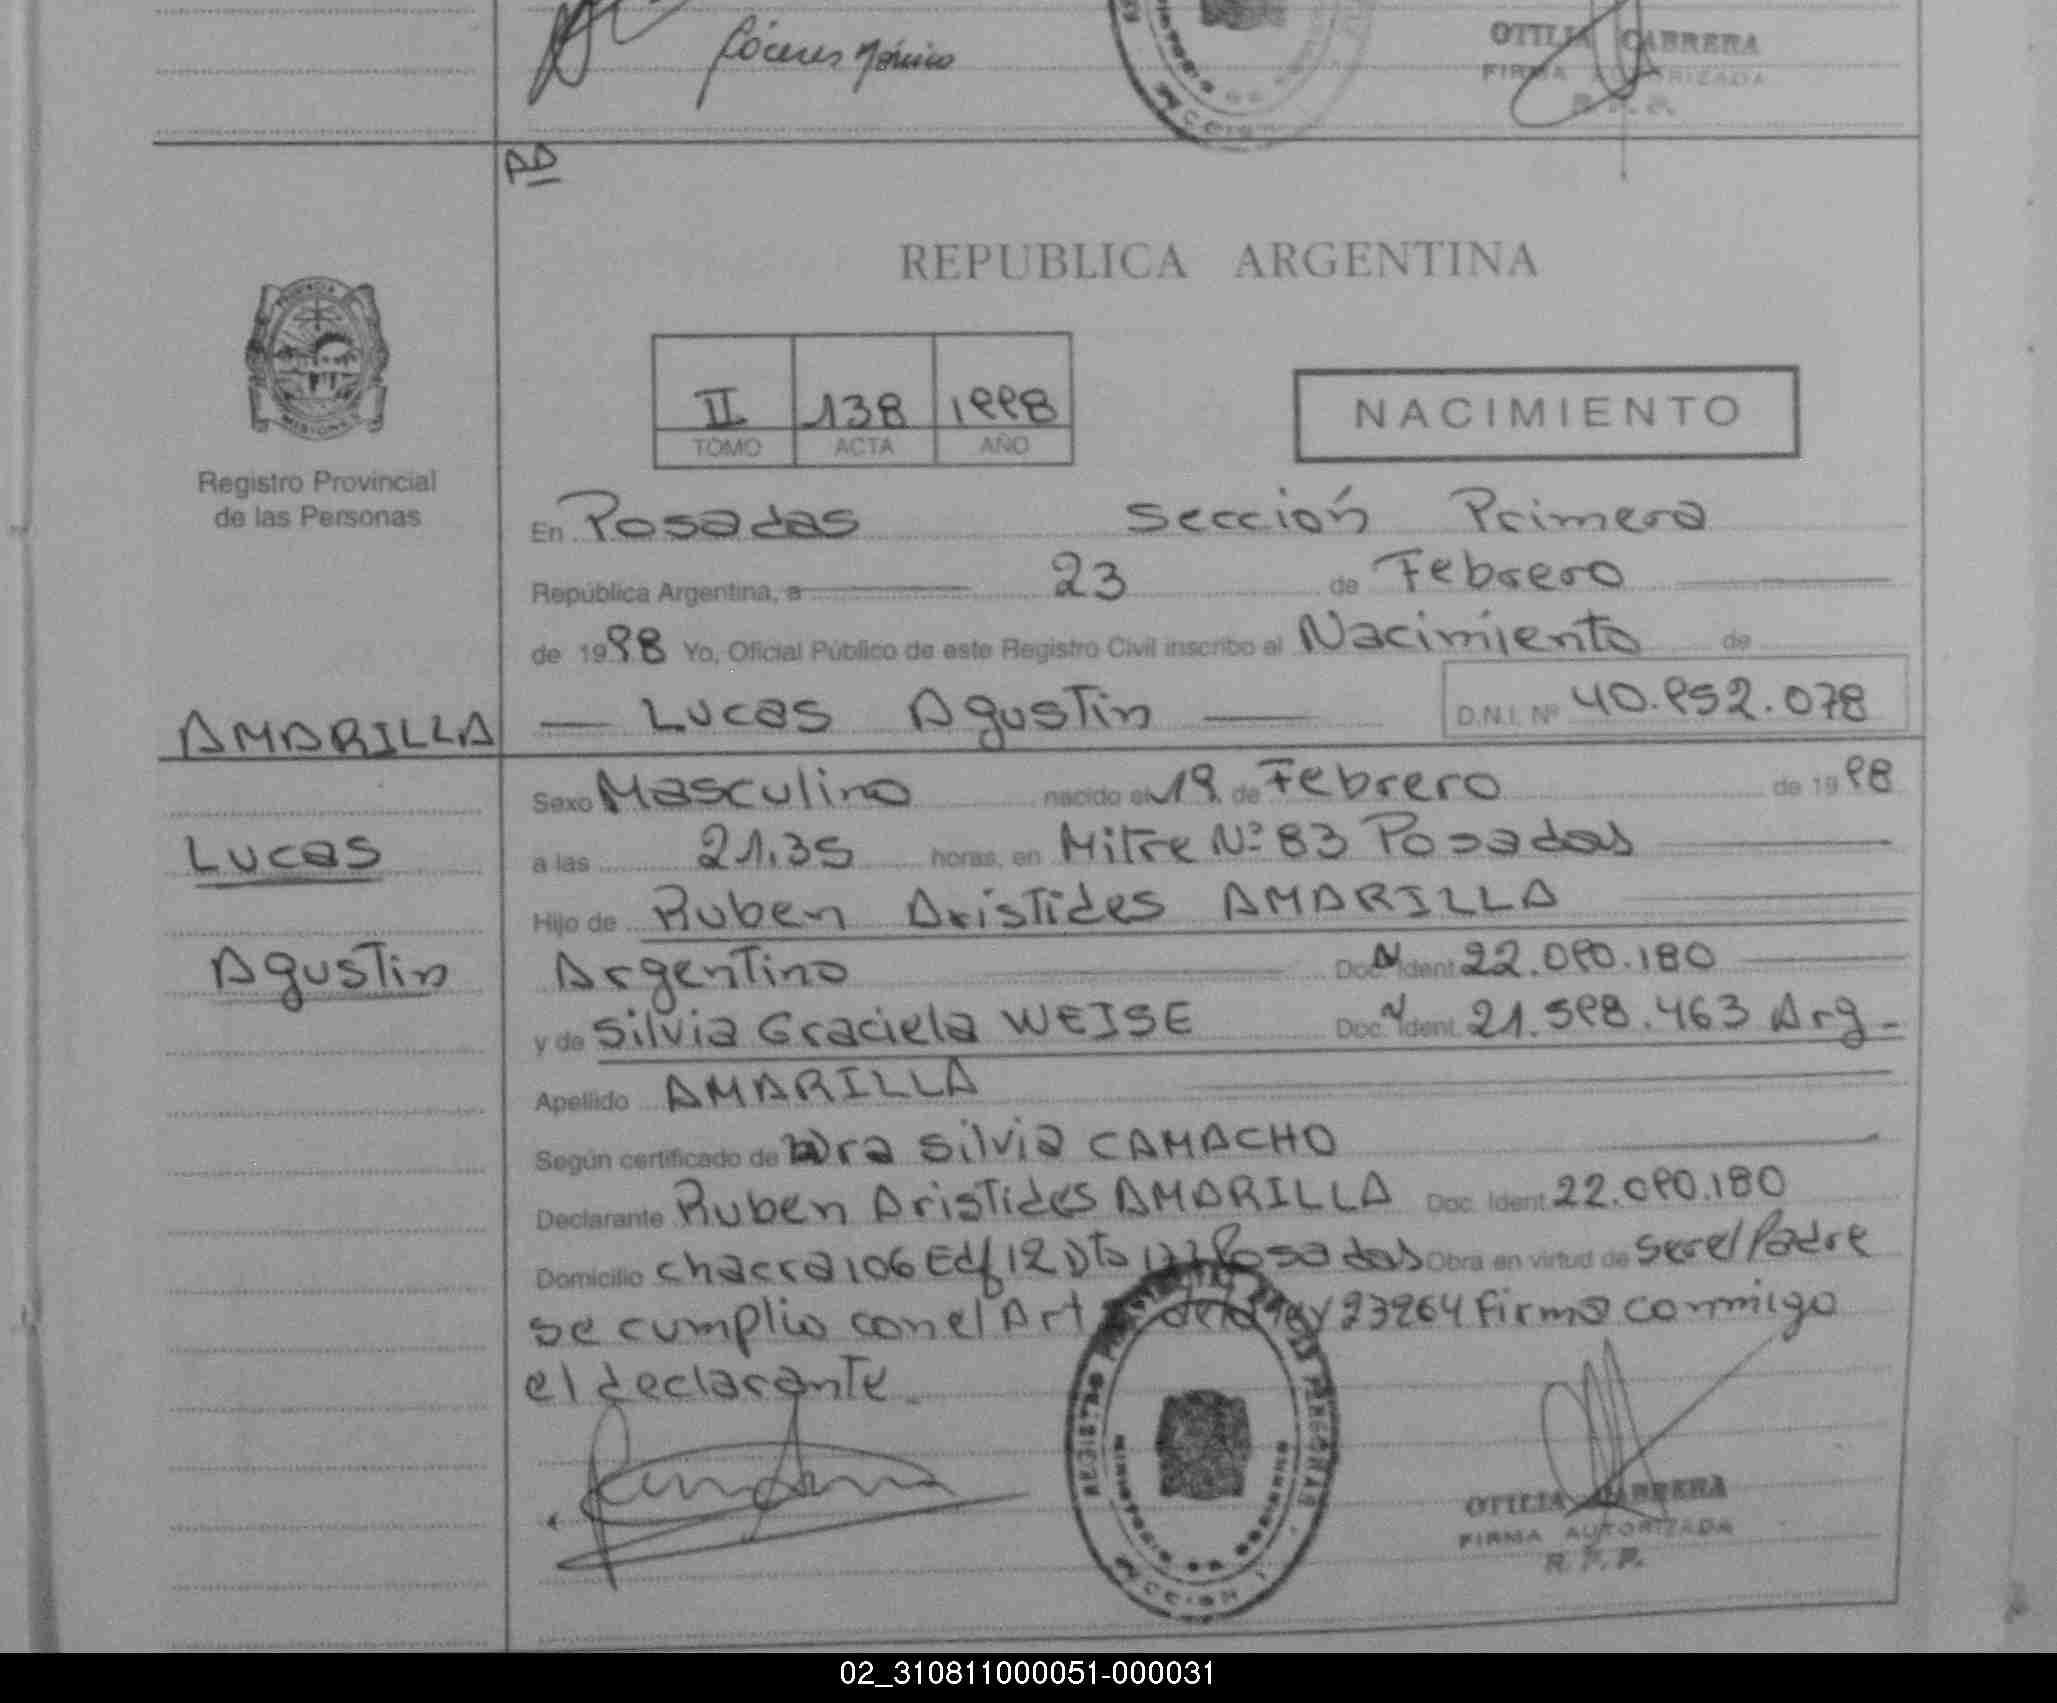 Cáceres Mónica
OTILIA CABRERA
FIRMA AUTORIZADA
R. P. P.
REPUBLICA ARGENTINA
PROVINCIA
MISIONES
Registro Provincial
de las Personas
II 138 1998
TOMO ACTA AÑO
NACIMIENTO
En Posadas Sección Primera
República Argentina, a 23 de Febrero
de 1998 Yo, Oficial Público de este Registro Civil inscribo el Nacimiento de
AMARILLA
Lucas Agustin D.N.I. Nº 40.952.078
Lucas
Agustin
Sexo Masculino nacido el 19 de Febrero de 1998
a las 21.35 horas, en Mitre Nº 83 Posadas
Hijo de Ruben Aristides AMARILLA
Argentino Doc. N Ident 22.090.180
y de Silvia Graciela WEISE Doc. N Ident. 21.598.463 Arg.
Apellido AMARILLA
Según certificado de Dra Silvia CAMACHO
Declarante Ruben Aristides AMARILLA Doc. Ident. 22.090.180
Domicilio chacra 106 Edf 12 Dto Posadas Obra en virtud de ser el Padre
se cumplio con el Art de la Ley 23264 Firma conmigo
el declarante
REGISTRO PERSONAS
MINISTERIO DE GOBIERNO
SECCION 1
OTILIA CABRERA
FIRMA AUTORIZADA
R. P. P.
02_310811000051-000031